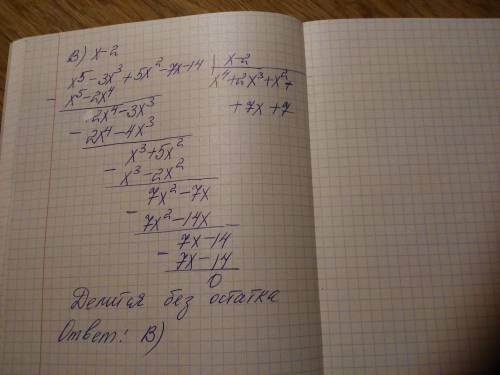 В) x-2
x⁵-3x³+5x²-7x-14 | x-2
x⁵-2x⁴ x⁴+2x³+x²+
2x⁴-3x³ +7x+7
- 2x⁴-4x³
x³+5x²
- x³-2x²
7x²-7x
- 7x²-14x
7x-14
- 7x-14
0
Делится без остатка
Ответ: В)